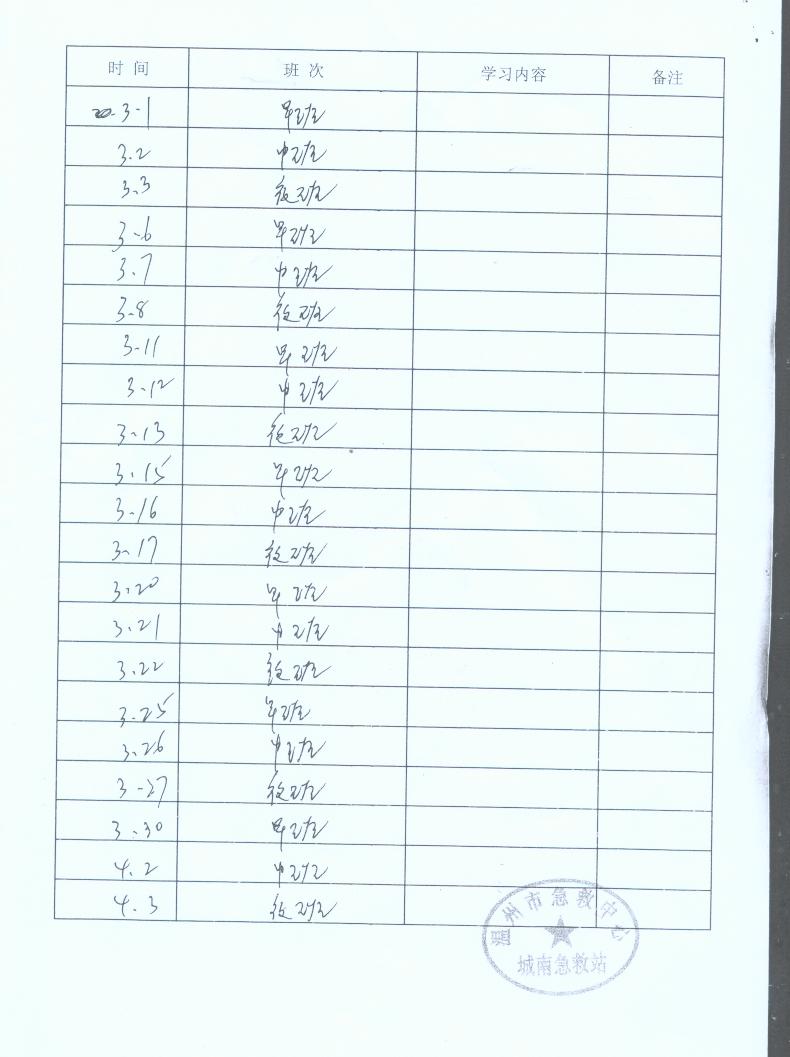 时 间 班 次 学习内容 备注
20.3-1 早班
3.2 中班
3.3 夜班
3-6 早班
3.7 中班
3-8 夜班
3-11 早班
3-12 中班
3-13 夜班
3.15 早班
3-16 中班
3-17 夜班
3.20 早班
3.21 中班
3.22 夜班
3.25 早班
3.26 中班
3-27 夜班
3.30 早班
4.2 中班
4.3 夜班
温州市急救中心
城南急救站